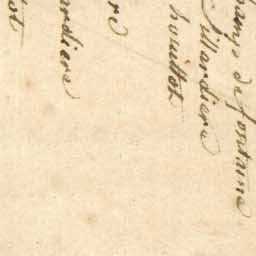 de fontaine
illardiere
houittot
re
ardiere
ot